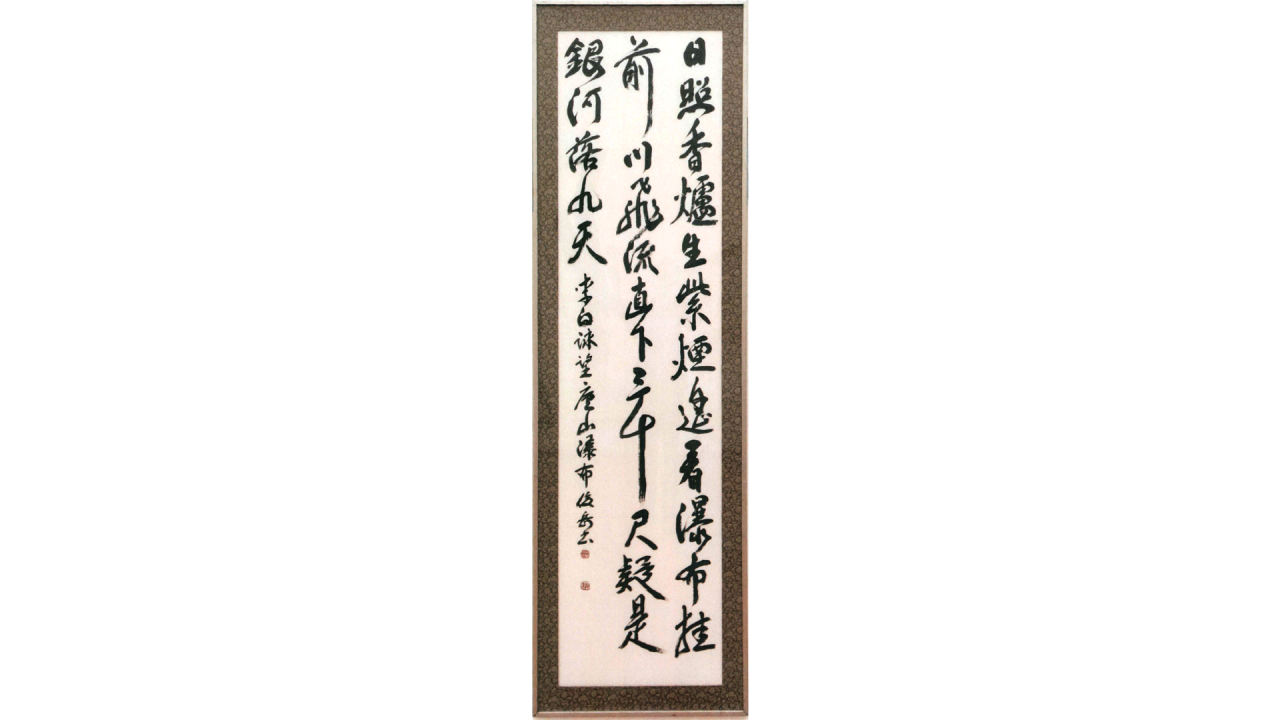 日照香爐生紫煙遙看瀑布挂
前川飛流直下三千尺疑是
銀河落九天
李白詠望廬山瀑布俊岳書